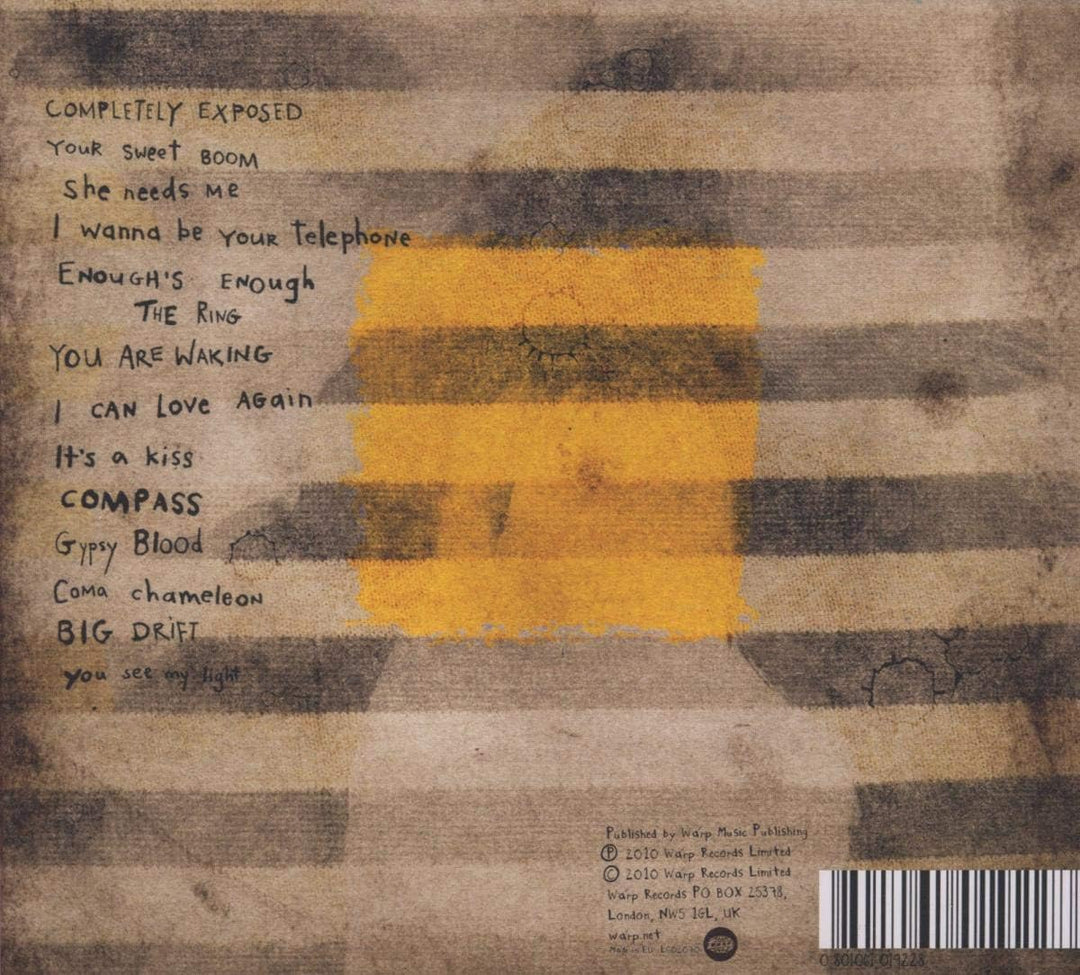 COMPLETELY EXPOSED
YOUR Sweet BOOM
She needs ME
I wanna be YOUR telephone
ENOUGH'S ENough
THE RING
YOU ARE WAKING
I CAN Love AGain
It's a kiss
COMPASS
Gypsy Blood
Coma chameleon
BIG DRiFT
you see my light
Published by Warp Music Publishing
℗ 2010 Warp Records Limited
© 2010 Warp Records Limited
Warp Records PO BOX 25378,
London, NW5 1GL, UK
warp.net
Made in EU